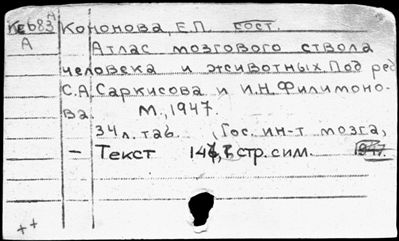 Кеб83 А Кононова, Е.П. сост.
А
Атлас мозгового ствола
человека и животных. Под ред
С.А. Саркисова и И.Н. Филимоно-
ва. М., 1947.
34 л. таб. (Гос. ин-т мозга,
– Текст 14 стр. сим. 1947
++